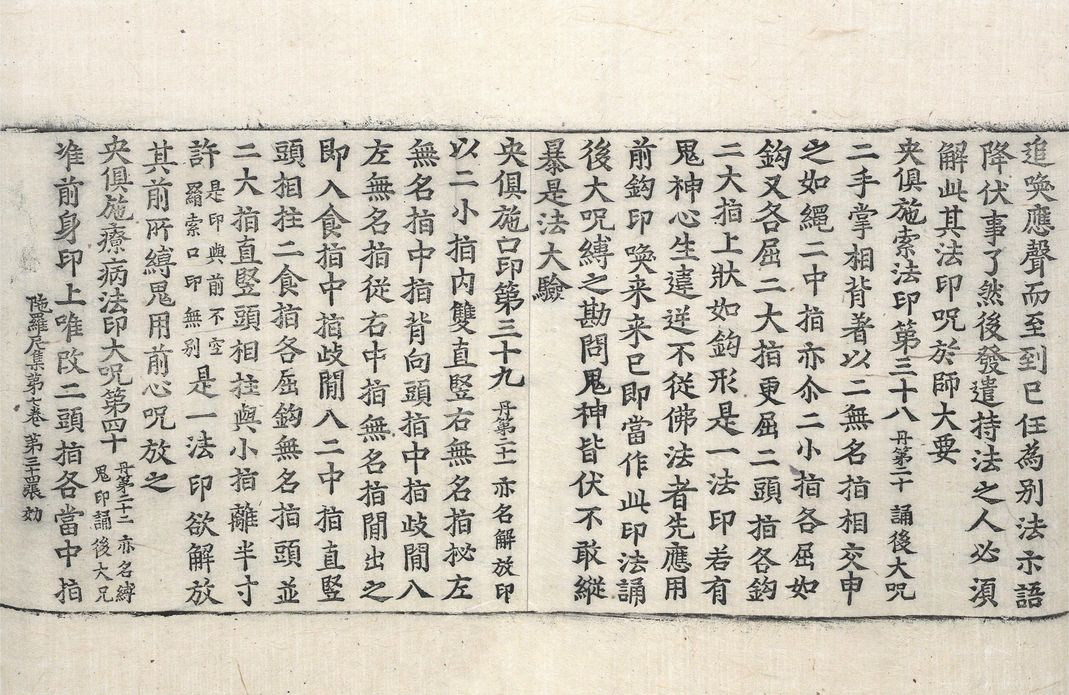 追喚應聲而至到已任為別法示語
降伏事了然後發遣持法之人必須
解此其法印呪於師大要
央俱施索法印第三十八丹第二十誦後大呪
二手掌相背著以二無名指相交申
之如繩二中指亦尒二小指各屈如
鉤又各屈二大指更屈二頭指各鉤
二大指上狀如鉤形是一法印若有
鬼神心生違逆不從佛法者先應用
前鉤印喚来来已即當作此印法誦
後大呪縛之勘問鬼神皆伏不敢縱
暴是法大驗
央俱施口印第三十九丹第二十一亦名解放印
以二小指內雙直竪右無名指拯左
無名指中指背向頭指中指歧閒入
左無名指従右中指無名指閒出之
即入食指中指歧閒入二中指直竪
頭相拄二食指各屈鉤無名指頭並
二大指直竪頭相拄與小指離半寸
許是印與前不空羂索口印無别是一法印欲解放
其前所縛鬼用前心呪放之
央俱施療病法印大呪第四十丹第二十二亦名縛鬼印誦後大呪
准前身印上唯改二頭指各當中指
陁羅尼集第七卷 第三十四張 効